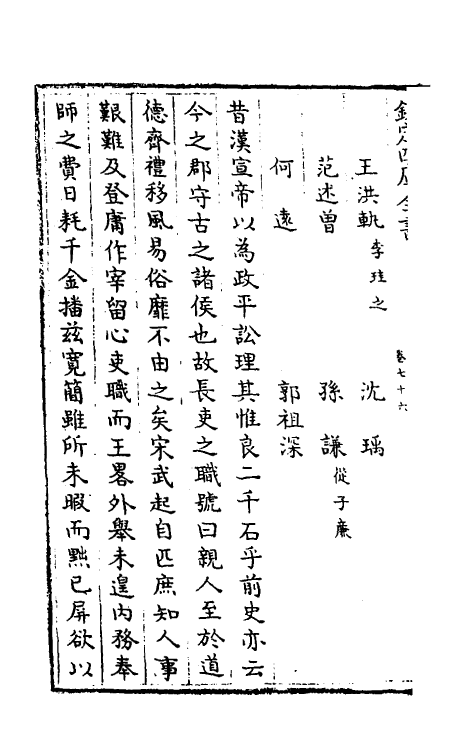 欽定四庫全書
卷七十六
王洪軌 李珪之 沈瑀
范述曾 孫謙 從子廉
何遠 郭祖深
昔漢宣帝以為政平訟理其惟良二千石乎前史亦云
今之郡守古之諸侯也故長吏之職號曰親人至於道
德齊禮移風易俗靡不由之矣宋武起自匹庶知人事
艱難及登庸作宰留心吏職而王畧外舉未遑內務奉
師之費日耗千金播茲寬簡雖所未暇而黜己屏欲以